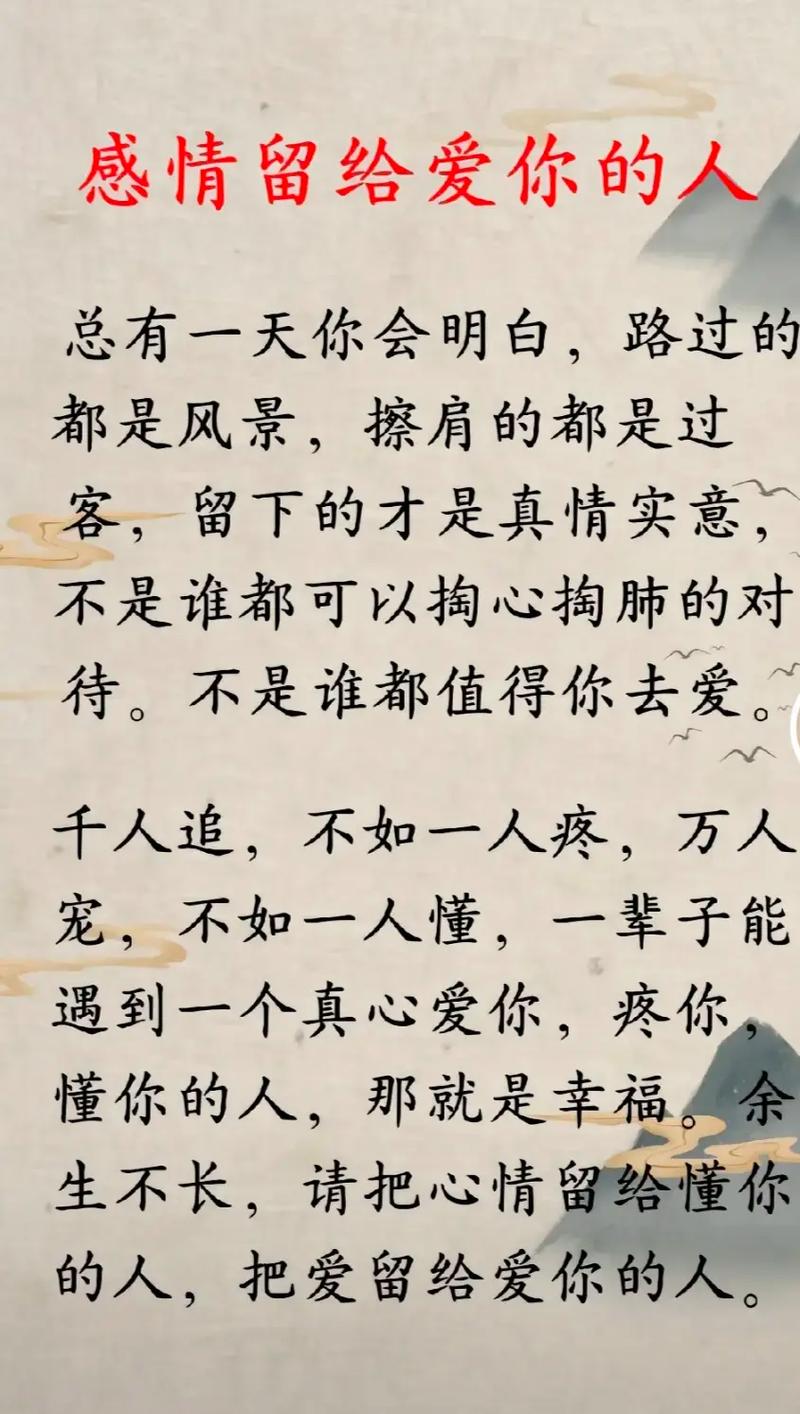 感情留给爱你的人
总有一天你会明白，路过的
都是风景，擦肩的都是过
客，留下的才是真情实意，
不是谁都可以掏心掏肺的对
待。不是谁都值得你去爱。
千人追，不如一人疼，万人
宠，不如一人懂，一辈子能
遇到一个真心爱你，疼你，
懂你的人，那就是幸福。余
生不长，请把心情留给懂你
的人，把爱留给爱你的人。